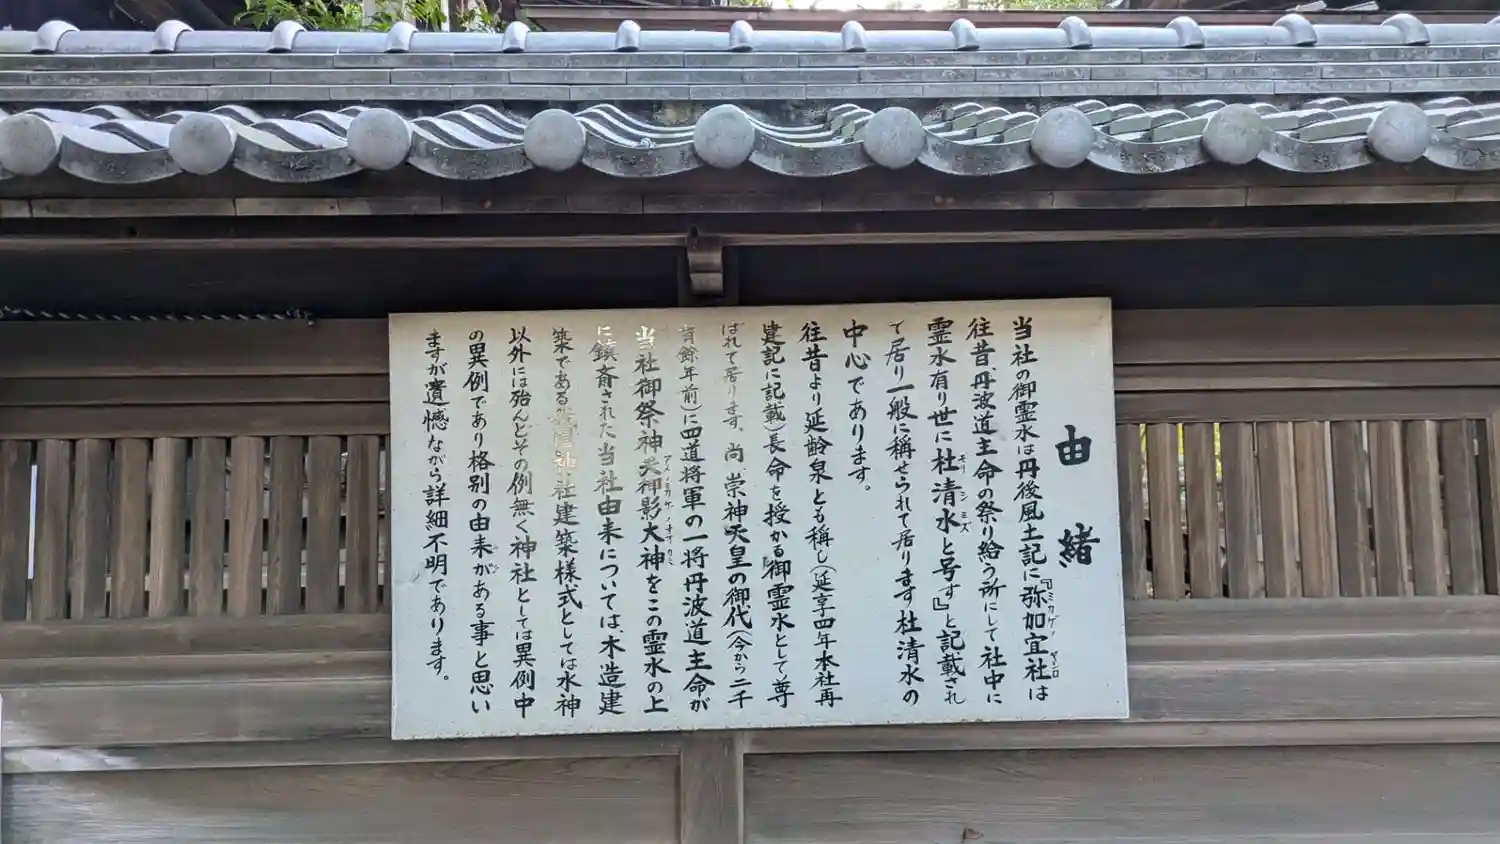 由緒
当社の御霊水は丹後風土記に『弥加宜社は
ミカゲノヤシロ
往昔、丹波道主命の祭り給う所にして社中に
霊水有り世に杜清水と号す』と記載され
モリシミズ
て居り一般に稱せられて居ります杜清水の
中心であります。
往昔より延齢泉とも稱し(延享四年本社再
建記に記載)長命を授かる御霊水として尊
ばれて居ります。尚、崇神天皇の御代(今から二千
有余年前)に四道将軍の一将丹波道主命が
当社御祭神天御影大神をこの霊水の上
アメノミカゲノオオカミ
に鎮斎された当社由来については、木造建
築であるが 神社建築様式としては水神
以外には殆んどその例無く神社としては異例中
の異例であり格別の由来がある事と思い
ますが遺憾ながら詳細不明であります。